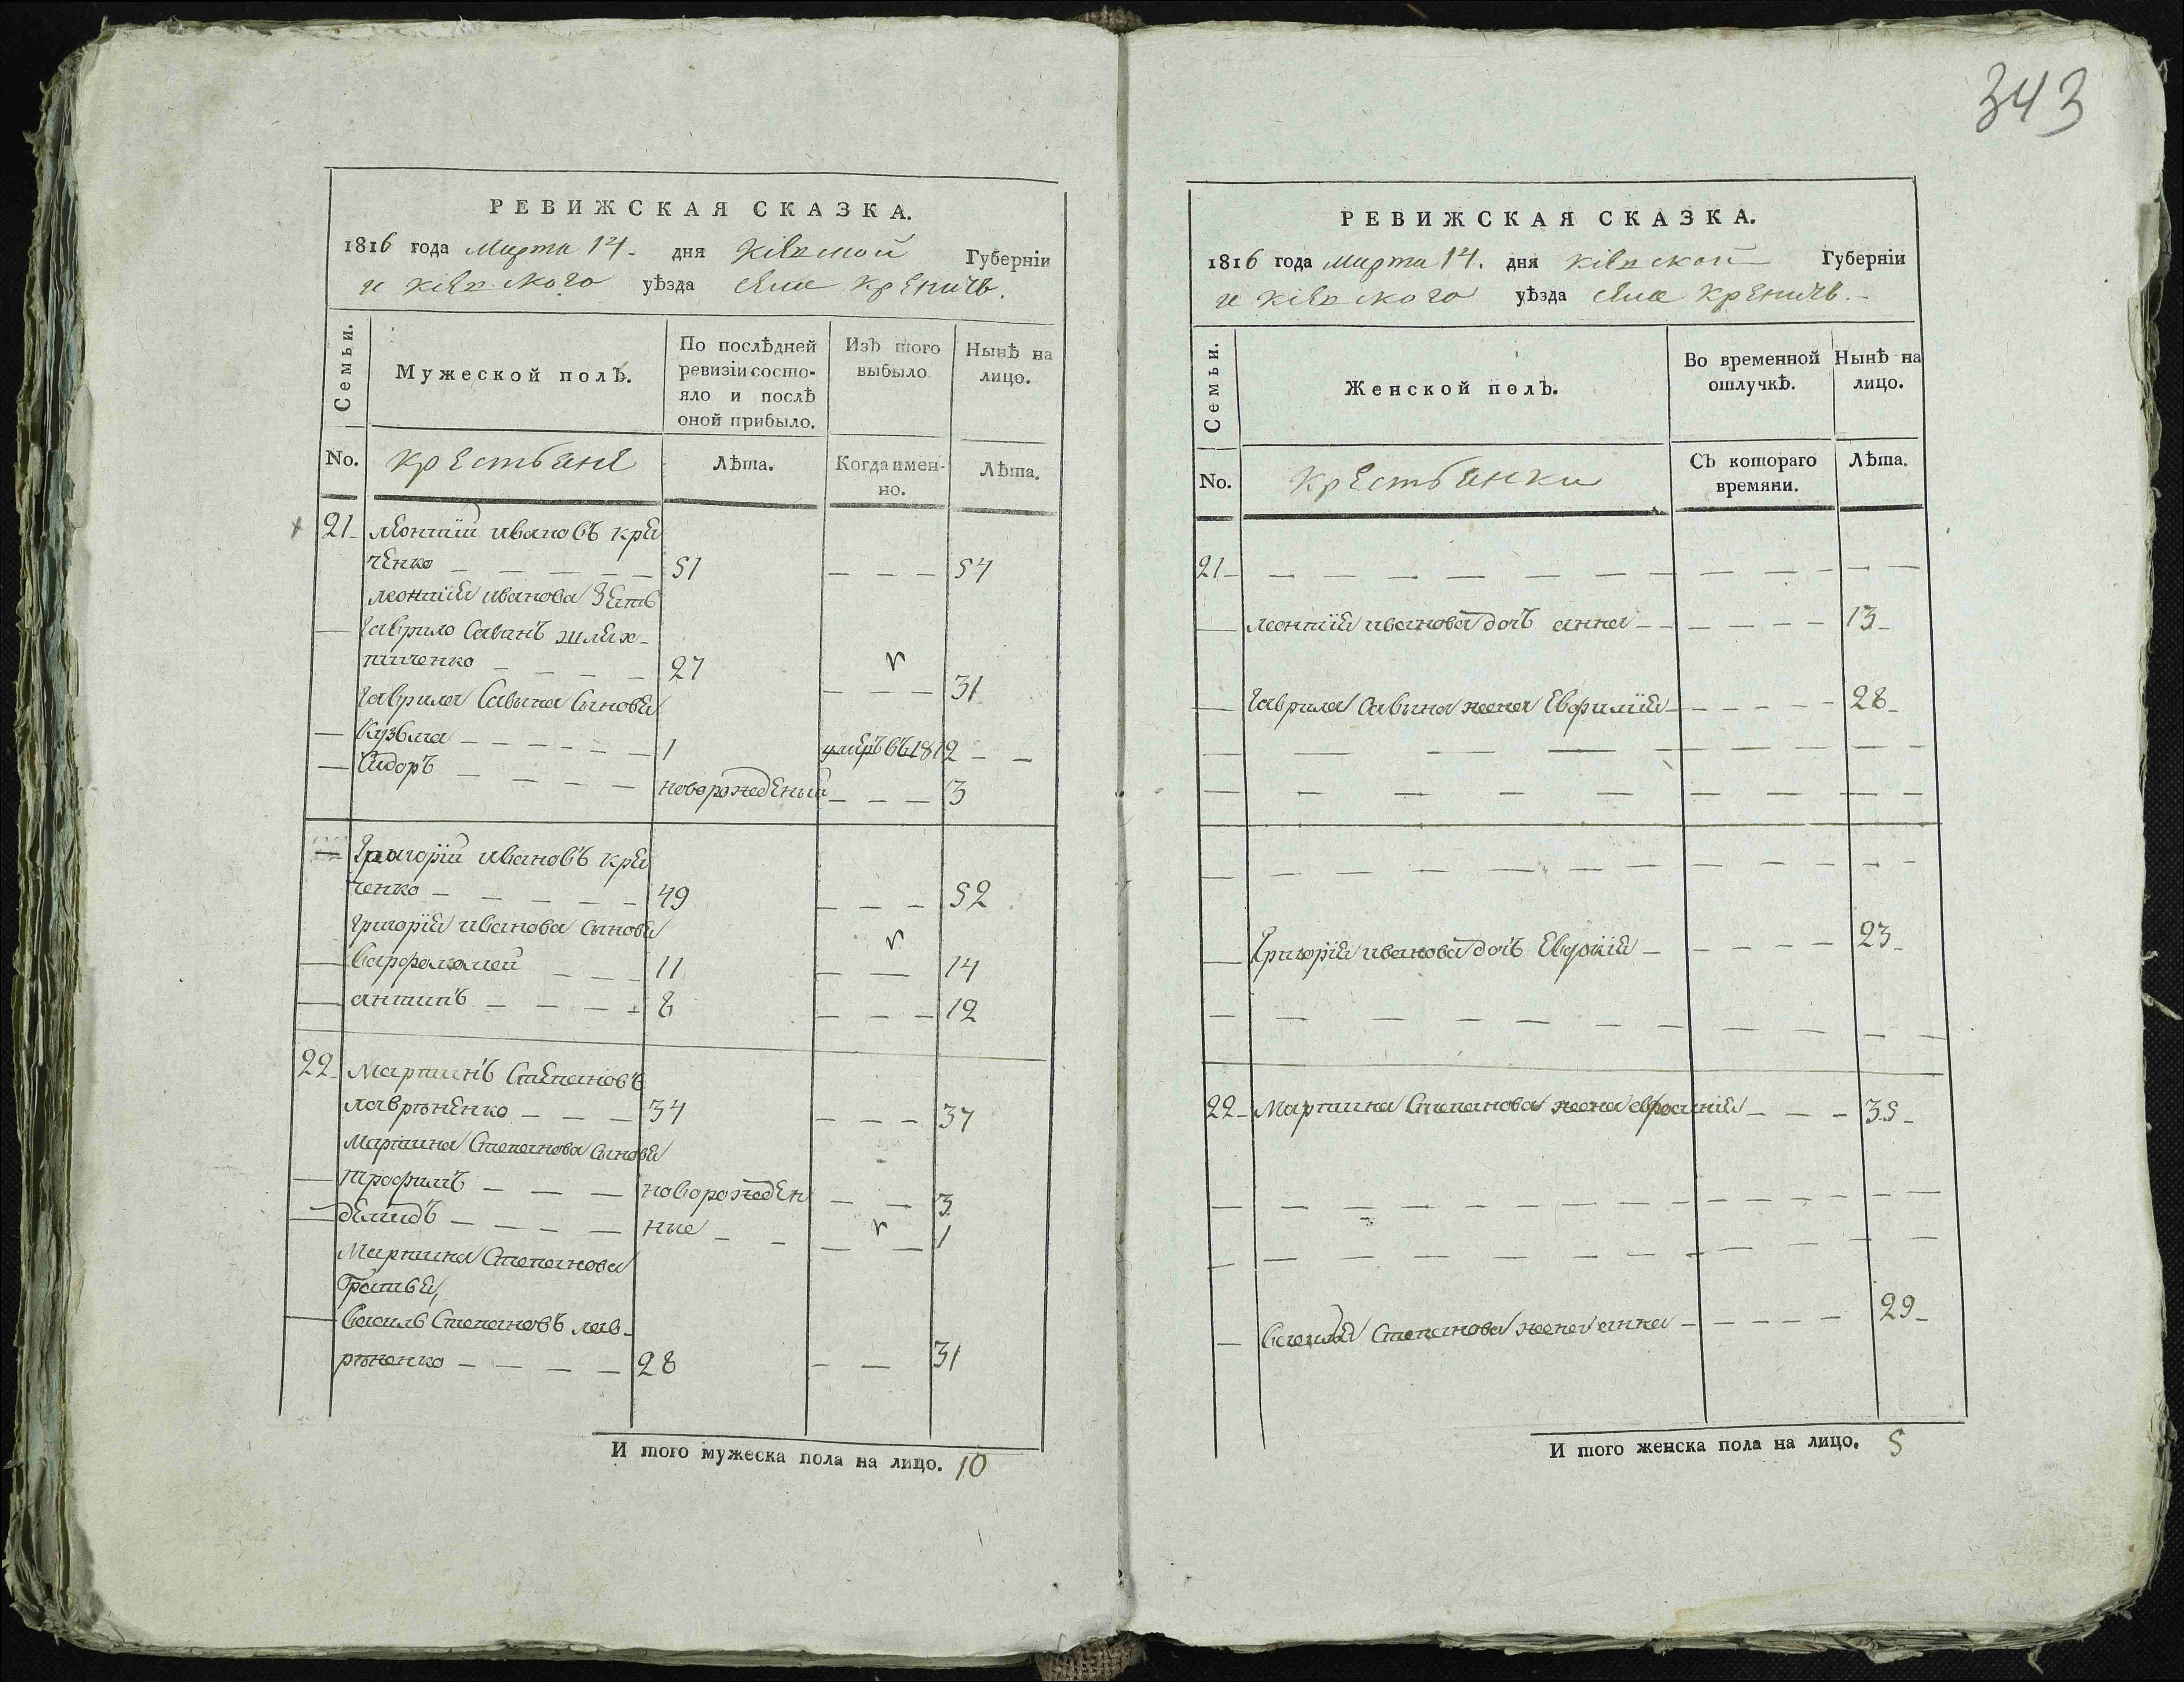 343
РЕВИЖСКАЯ СКАЗКА.
1816 года Марта 14. дня Кіевской Губерніи
и Кіевского уѣзда села Креничь.
Семьи.
Мужеской полъ.
По послѣдней ревизіи состо-
яло и послѣ
оной прибыло.
Изъ того
выбыло
Нынѣ на
лицо.
No.
крестьяне
Лѣта.
Когда имен-
но.
Лѣта.
21 Леонтїй Ивановъ кри
ченко 51 54
Леонтїя Иванова зять
Гаврило Савинъ шлях
тиченко 27 31
Гаврила Савина сыновья
Кузьма 1 умеръ въ 1812
Сидоръ новорожденый 3
Григорїй Ивановъ кри
ченко 49 52
Григорїя Иванова сыновья
Варфоломей 11 14
антипъ 8 12
22 Мартинъ Степановъ
лавриненко 34 37
Мартина Степанова сыновья
Трофимъ новорожден 3
демидъ ные 1
Мартина Степанова
братья,
Василь Степановъ лав-
риненко 28 31
И того мужеска пола на лицо. 10
РЕВИЖСКАЯ СКАЗКА.
1816 года Марта 14. дня Кіевской Губерніи
и Кіевского уѣзда села Креничь.
Семьи.
Женской полъ.
Во временной
отлучкѣ.
Нынѣ на
лицо.
No.
крестьянки
Съ котораго
времяни.
Лѣта.
21
Леонтїя Иванова дочь анна 13
Гаврила Савина жена Евфимїя 28
Григорїя Иванова дочь Евдокїя 23
22 Мартина Степанова жена 35
Василя Степанова жена анна 29
И того женска пола на лицо. 5